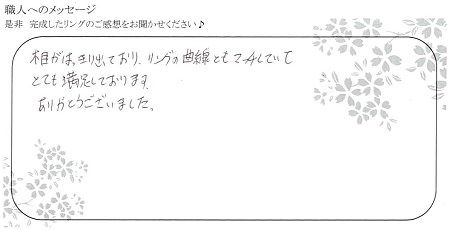 職人へのメッセージ
是非 完成したリングのご感想をお聞かせください♪
木目がはっきり出ており、リングの曲線ともマッチしていて
とても満足しております。
ありがとうございました。